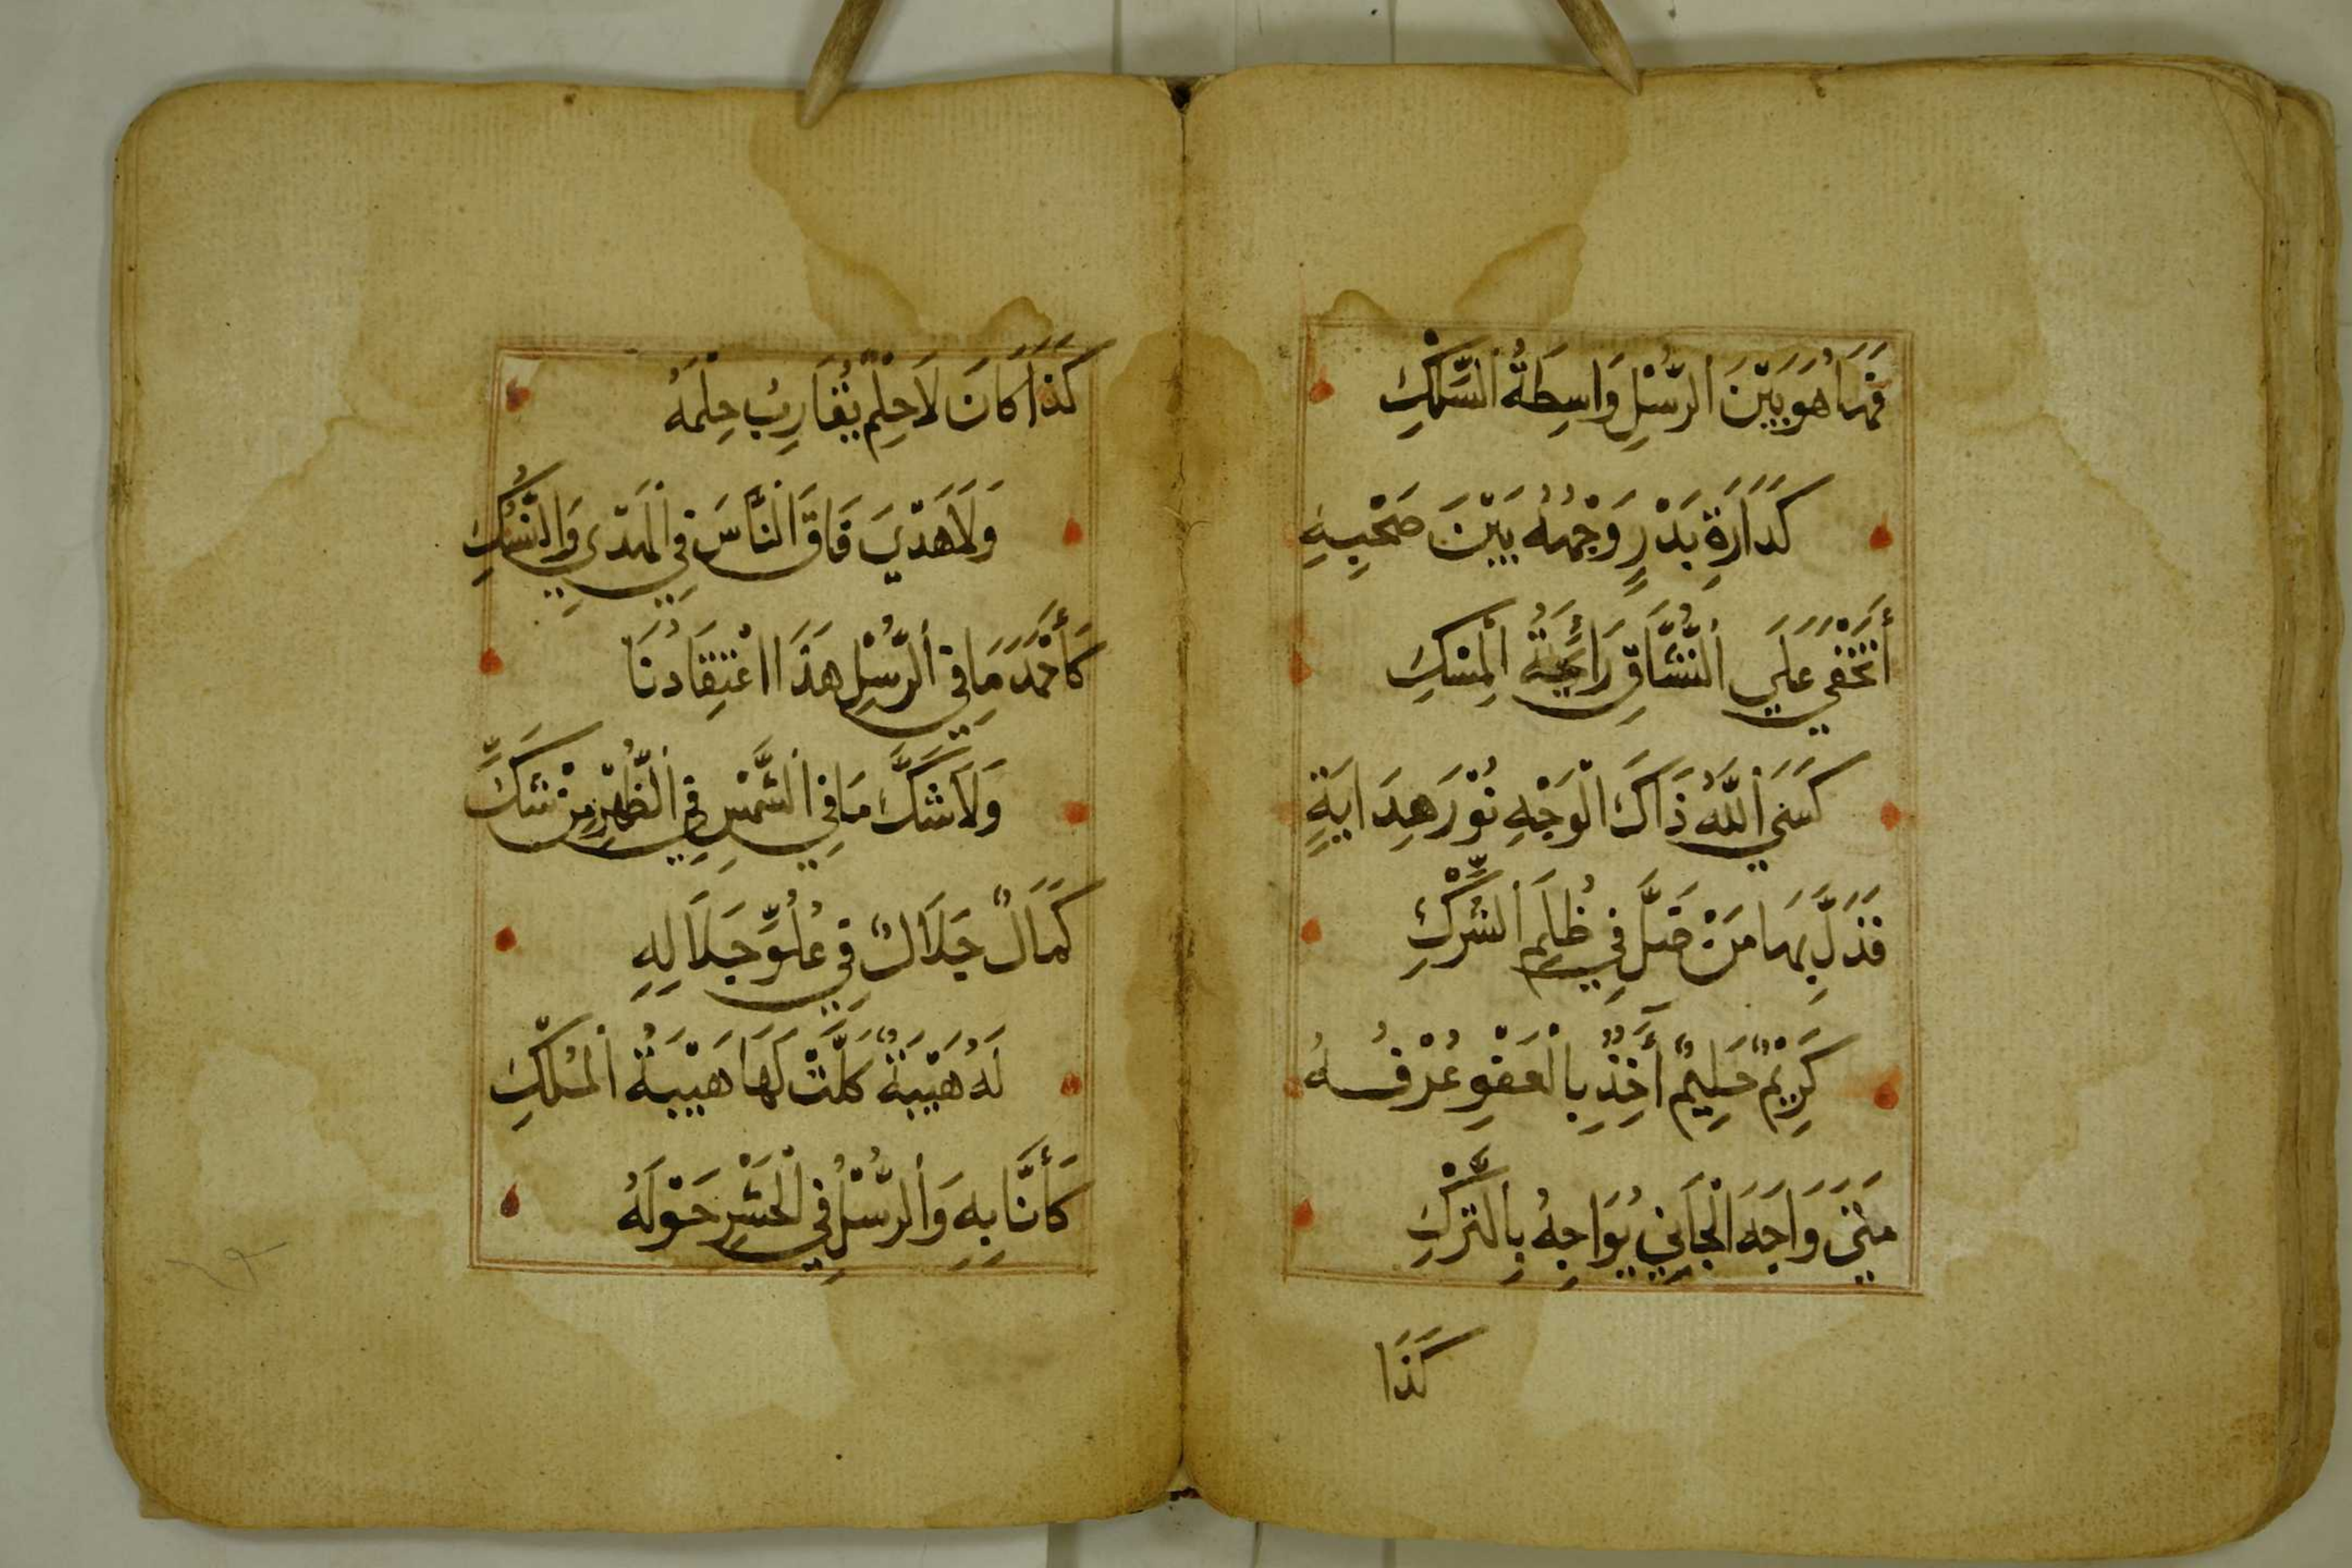 فَهَا هُوَ بَيْنَ الرُّسْلِ وَاسِطَةُ السِّمْكِ
كَدَارَةِ بَدْرٍ وَجْهُهُ بَيْنَ صَحْبِهِ
أَتَخْفَي عَلَي النُّشَّاقِ رَائِحَةُ الْمِسْكِ
كَسَي اللَّهُ ذَاكَ الْوَجْهِ نُوْرَ هِدَايَةٍ
فَدَلَّ بِهَا مَنْ ضَلَّ فِي ظُلَمِ الشِّرْكِ
كَرِيْمٌ حَلِيمٌ أَخِذٌ بِالْعَفْوِ عُرْفُهُ
مَتَي وَاجَهَ الْجَانِي يُوَاجِهُ بِالتَّرْكِ
كَذَا
كَذَا كَانَ لَا حِلْمٌ يُقَارِبُ حِلْمَهُ
وَلَا هَدْيَ فَاقَ النَّاسَ فِي الْهَدْيِ وَالنُّسْكِ
كَأَحْمَدَ مَا فِي الرُّسْلِ هَذَا اعْتِقَادُنَا
وَلَا شَكَّ مَا فِي الشَّمْسِ فِي الظُّهْرِ مِنْ شَكِّ
كَمَالٌ جَلَالٌ فِي عُلُوِّ جَلَالِهِ
لَهُ هَيْبَةٌ كَلَّتْ لَهَا هَيْبَةُ الْمُلْكِ
كَأَنَّا بِهِ وَالرُّسْلُ فِي الْحَشْرِ حَوْلَهُ